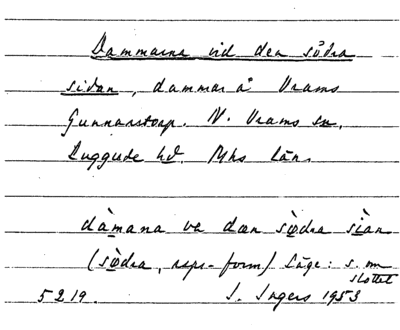 Dammarna vid den södra
sidan, dammar å Vrams
Gunnarstorp. N. Vrams sn.
Luggude hd. Mhs län.
dàmana va dæn sødra sìan
(sødra, rspr-form) Läge: s. om
slottet
5219. I. Ingers 1953